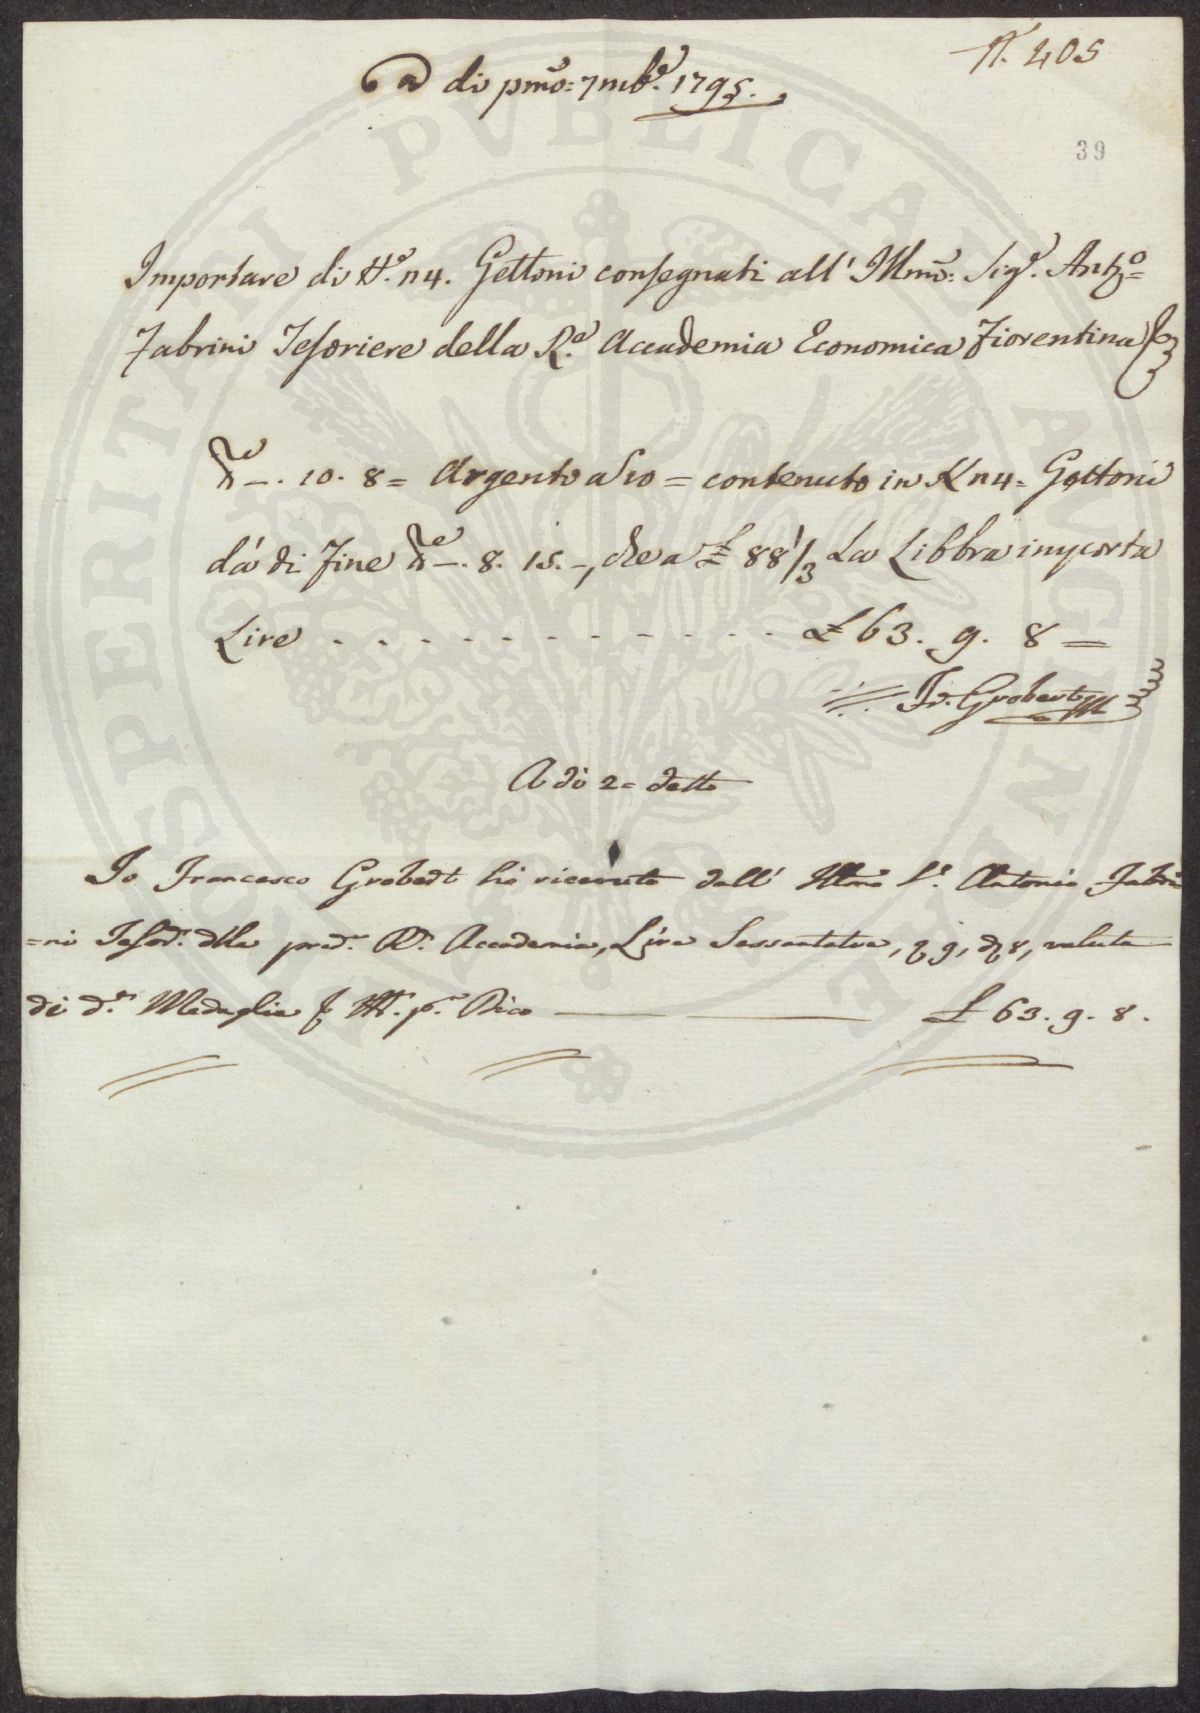 N.º 405
A di pmo: 7mbe. 1795.
39
Importare di N.º 114. Gettoni consegnati all' Illmo: Sigr. Antº=
Fabrini Tesoriere della R.e Accademia Economica Fiorentina
-. 10. 8= Argento a S10 = contenuto in N 114= Gettoni
dà di Fine -. 8. 15. -, che a £ 88 1/3 La Libbra importa
Lire - - - - - - - - - - - - £ 63. 9. 8 =
Fr. Grobert
A di 2= detto
Io Francesco Grobert hò ricevuto dall' Illmo Sr. Antonio Fabri
=ni Tesore. della preda. Ra. Accademia, Lire Sessantatre, 9, 8, valuta
di de. Medaglie Dico £ 63. 9. 8.
PROSPERITATI PVBLICAE AVGENDAE